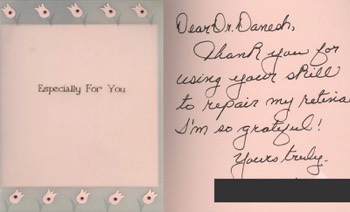 Especially For You
Dear Dr. Danesh,
Thank you for
using your skill
to repair my retina
I'm so grateful!
Yours truly.